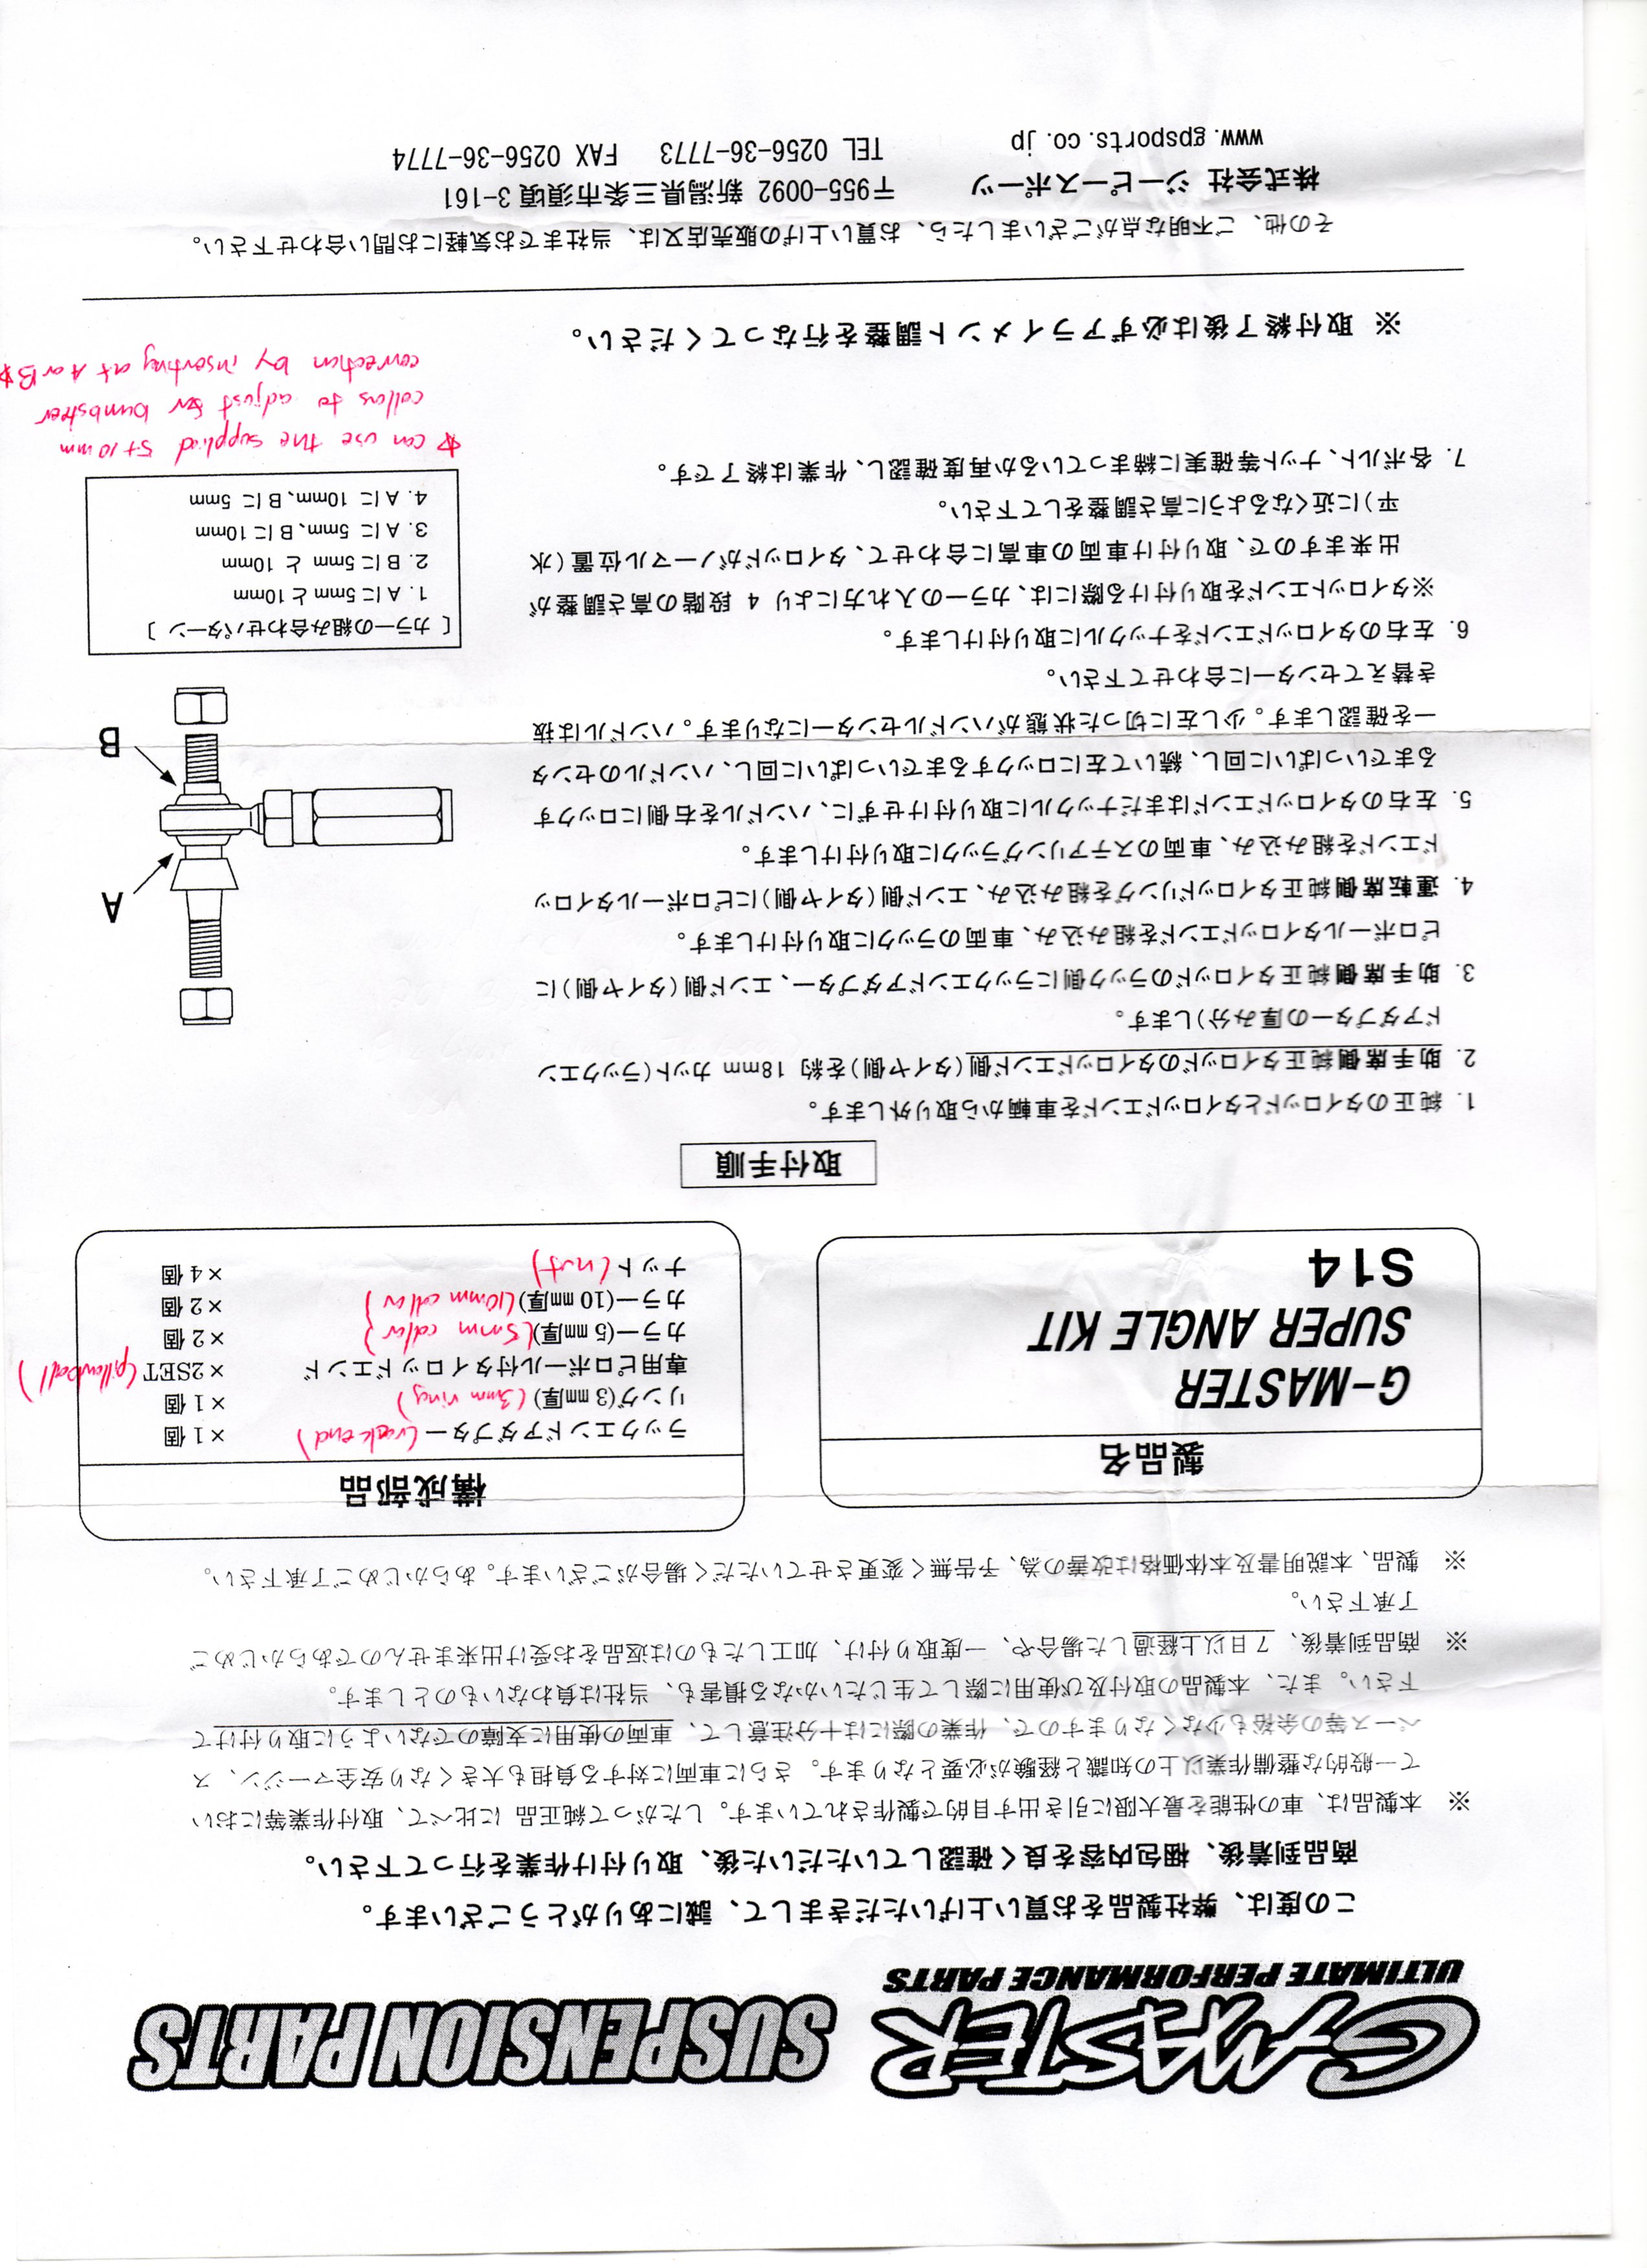 G-MASTER SUSPENSION PARTS
ULTIMATE PERFORMANCE PARTS
この度は、弊社製品をお買い上げいただきまして、誠にありがとうございます。
商品到着後、梱包内容を良く確認していただいた後、取り付け作業を行って下さい。
※ 本製品は、車の性能を最大限に引き出す目的で製作されています。したがって純正品 に比べて、取付作業等におい
て一般的な整備作業以上の知識と経験が必要となります。さらに車両に対する負担も大きくなり安全マージン、ス
ペース等の余裕も少なくなりますので、作業の際には十分注意して、車両の使用に支障のでないように取り付けて
下さい。また、本製品の取付及び使用に際して生じたいかなる損害も、当社は負わないものとします。
※ 商品到着後、7日以上経過した場合や、一度取り付け、加工したものは返品をお受け出来ませんのであらかじめご
了承下さい。
※ 製品、本説明書及本体価格は改善の為、予告無く変更させていただく場合がございます。あらかじめご了承下さい。
製品名
G-MASTER
SUPER ANGLE KIT
S14
構成部品
ラックエンドアダプター (rack end) ×1個
リング(3mm厚) (3mm ring) ×1個
専用ピロボール付タイロッドエンド ×2SET (pillowball)
カラー(5mm厚) (5mm collar) ×2個
カラー(10mm厚) (10mm collar) ×2個
ナット (nut) ×4個
取付手順
1. 純正のタイロッドとタイロッドエンドを車輌から取り外します。
2. 助手席側純正タイロッドのタイロッドエンド側(タイヤ側)を約 18mm カット(ラックエン
ドアダプターの厚み分)します。
3. 助手席側純正タイロッドのラック側にラックエンドアダプター、エンド側(タイヤ側)に
ピロボールタイロッドエンドを組み込み、車両のラックに取り付けします。
4. 運転席側純正タイロッドリングを組み込み、エンド側(タイヤ側)にピロボールタイロッ
ドエンドを組み込み、車両のステアリングラックに取り付けします。
5. 左右のタイロッドエンドはまだナックルに取り付けせずに、ハンドルを右側にロックす
るまでいっぱいに回し、続いて左にロックするまでいっぱいに回し、ハンドルのセンタ
ーを確認します。少し左に切った状態がハンドルセンターになります。ハンドルは抜
き替えてセンターに合わせて下さい。
6. 左右のタイロッドエンドをナックルに取り付けします。
※タイロットエンドを取り付ける際には、カラーの入れ方により 4 段階の高さ調整が
出来ますので、取り付け車両の車高に合わせて、タイロッドがノーマル位置(水
平)に近くなるように高さ調整をして下さい。
7. 各ボルト、ナット等確実に締まっているか再度確認し、作業は終了です。
A
B
〔 カラーの組み合わせパターン 〕
1. Aに5mmと10mm
2. Bに5mm と 10mm
3. Aに 5mm、Bに10mm
4. Aに 10mm、Bに 5mm
☆ can use the supplied 5+10mm
collars to adjust for bumpsteer
correction by inserting at A or B☆
※ 取付終了後は必ずアライメント調整を行なってください。
その他、ご不明な点がございましたら、お買い上げの販売店又は、当社までお気軽にお問い合わせ下さい。
株式会社 ジーピースポーツ 〒955-0092 新潟県三条市須頃3-161
www.gpsports.co.jp TEL 0256-36-7773 FAX 0256-36-7774